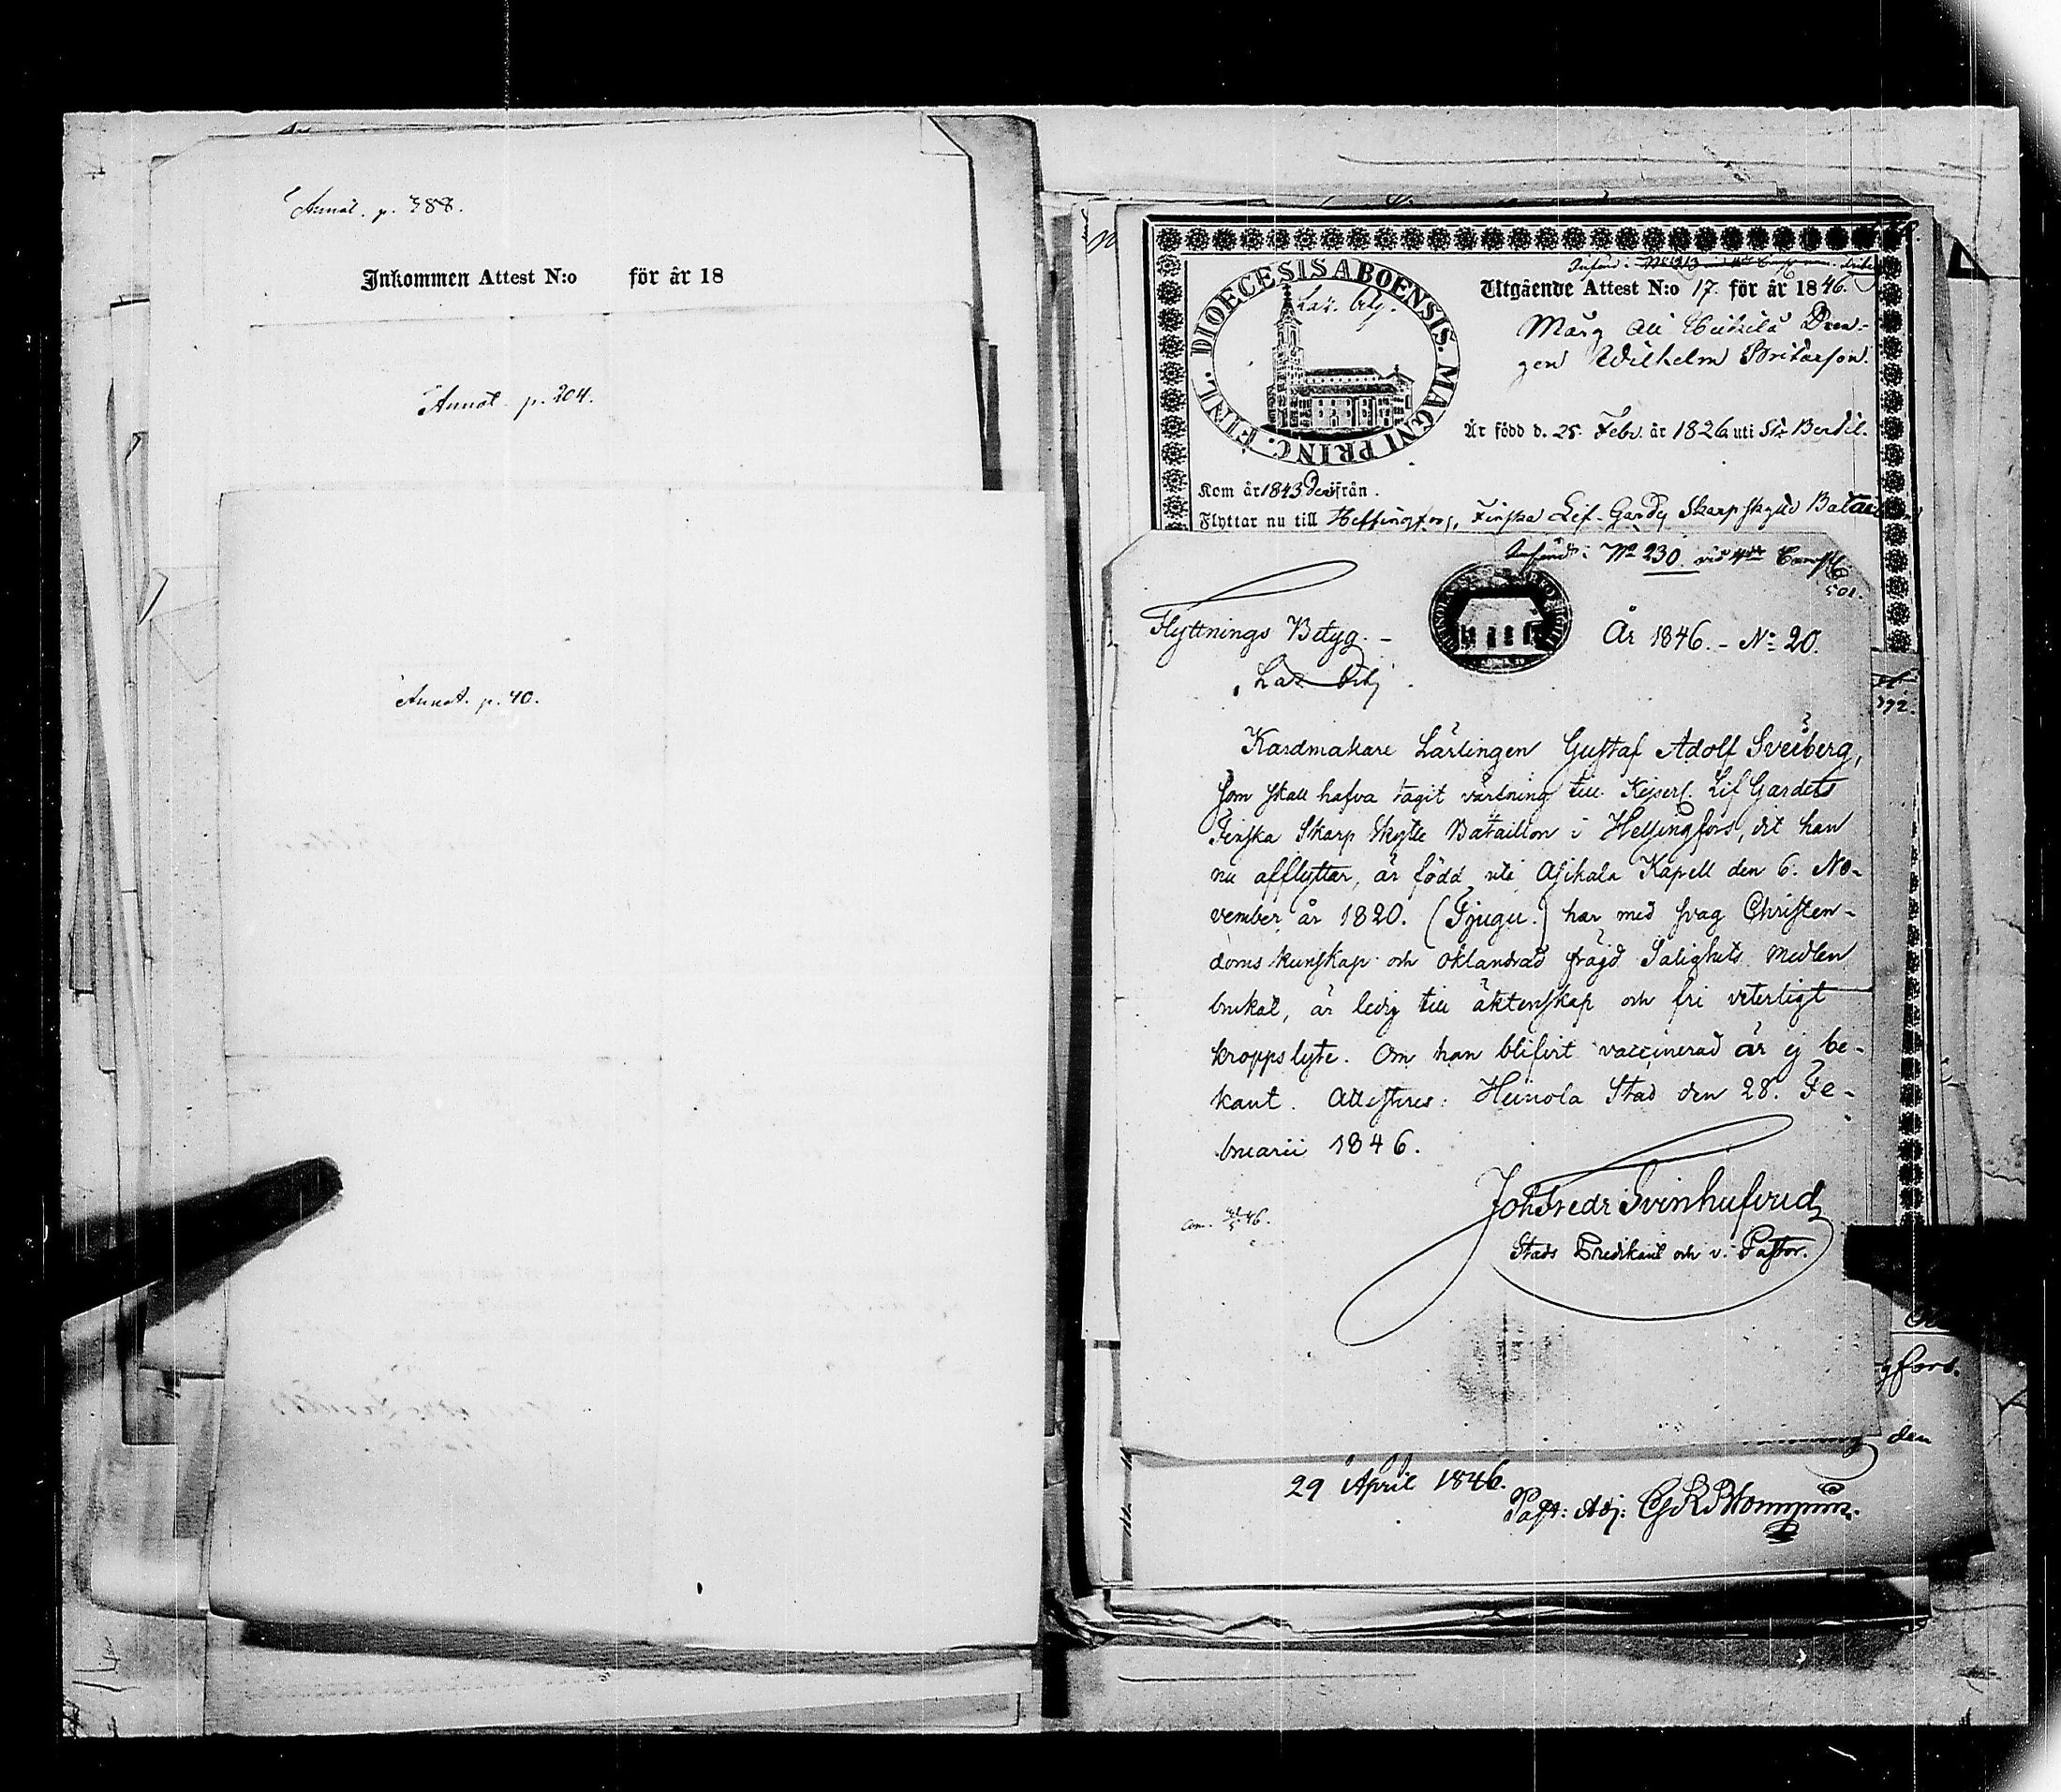 Annot. p. 388.
Inkommen Attest N:o för år 18
Annot. p. 204.
Annot. p. 40.
DIOECESIS ABOENSIS. MAGNI PRINC. FINL.
Utgående Attest N:o 17. för år 1846.
Dren-
gen Wilhelm
Är född d. 25. Febr. år 1826 uti St. Bertil.
Kom år 1843 derifrån.
Flyttar nu till Helsingfors, Finska Lif-Gardes Skarpskytte
Infördt i No 230. vid 4de
501.
Flyttnings Betyg. –
År 1846. – No 20.
392.
Kardmakare Lärlingen Gustaf Adolf Sveiberg,
som skall hafva tagit värfning till Kejserl. Lif Gardets
Finska Skarp Skytte Bataillon i Helsingfors, dit han
nu afflyttar, är född uti Asikala Kapell den 6. No-
vember år 1820. (Tjugu.) har med svag Christen-
doms kunskap och oklandrad frägd Salighets medlen
brukat, är ledig till äktenskap och fri veterligt
kroppslyte. Om han blifvit vaccinerad är ej be-
kant. Attesteras: Heinola Stad den 28. Fe-
bruarii 1846.
Joh Fredr Svinhufvud
Stads Predikant och v. Pastor.
gfors.
den
29 April 1846.
Past: Adj: